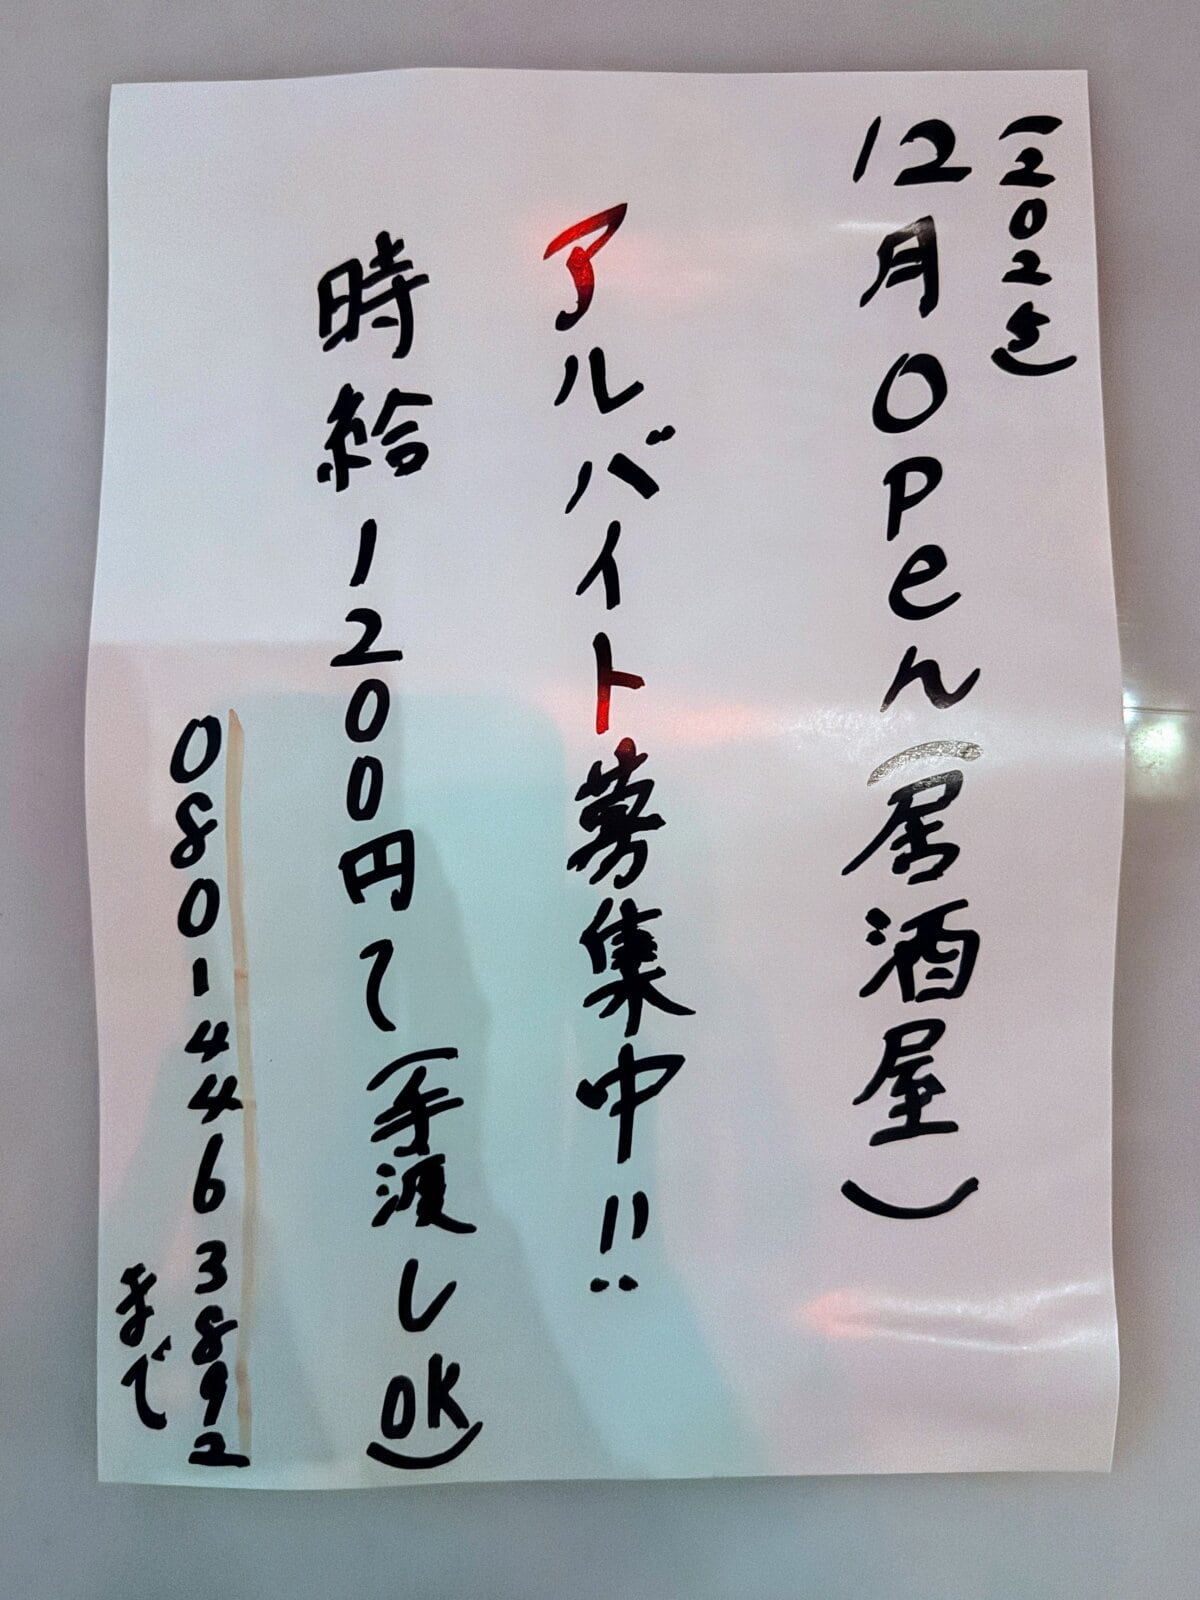 (2025)
12月Open(居酒屋)
アルバイト募集中!!
時給1200円〜(手渡しOK)
08014463892
まで